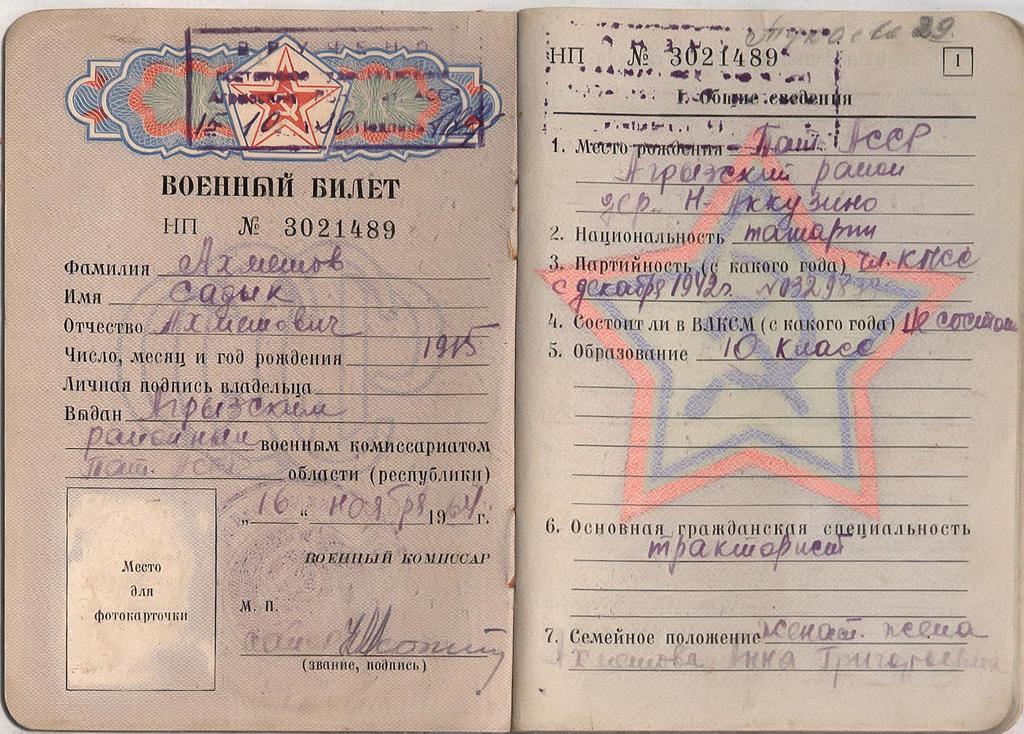 ВРУЧЕНО
15 10 80
ВОЕННЫЙ БИЛЕТ
НП № 3021489
Фамилия Ахметов
Имя Садык
Отчество Ахметович
Число, месяц и год рождения 1915
Личная подпись владельца
Выдан Агрызским
районным военным комиссариатом
Тат. АССР области (республики)
„16“ ноября 1964 г.
ВОЕННЫЙ КОМИССАР
Место
для
фотокарточки
М. П.
(звание, подпись)
29
НП № 3021489
1
I. Общие сведения
1. Место рождения Тат. АССР
Агрызский район
дер. Н-Аккузино
2. Национальность татарин
3. Партийность (с какого года) чл. КПСС
с декабря 1942 г.
4. Состоит ли в ВЛКСМ (с какого года) Не состоит
5. Образование 10 класс
6. Основная гражданская специальность
тракторист
7. Семейное положение женат. жена
Ахметова Анна Григорьевна